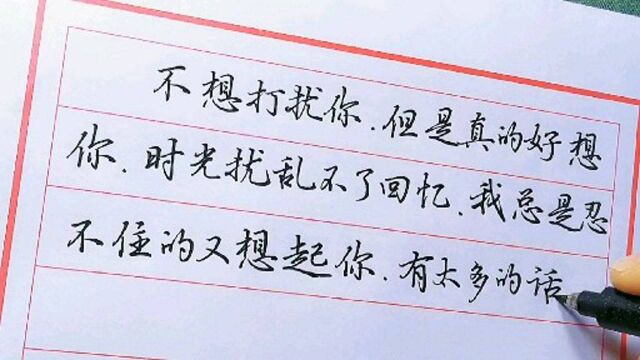 不想打扰你.但是真的好想
你.时光扰乱不了回忆.我总是忍
不住的又想起你.有太多的话